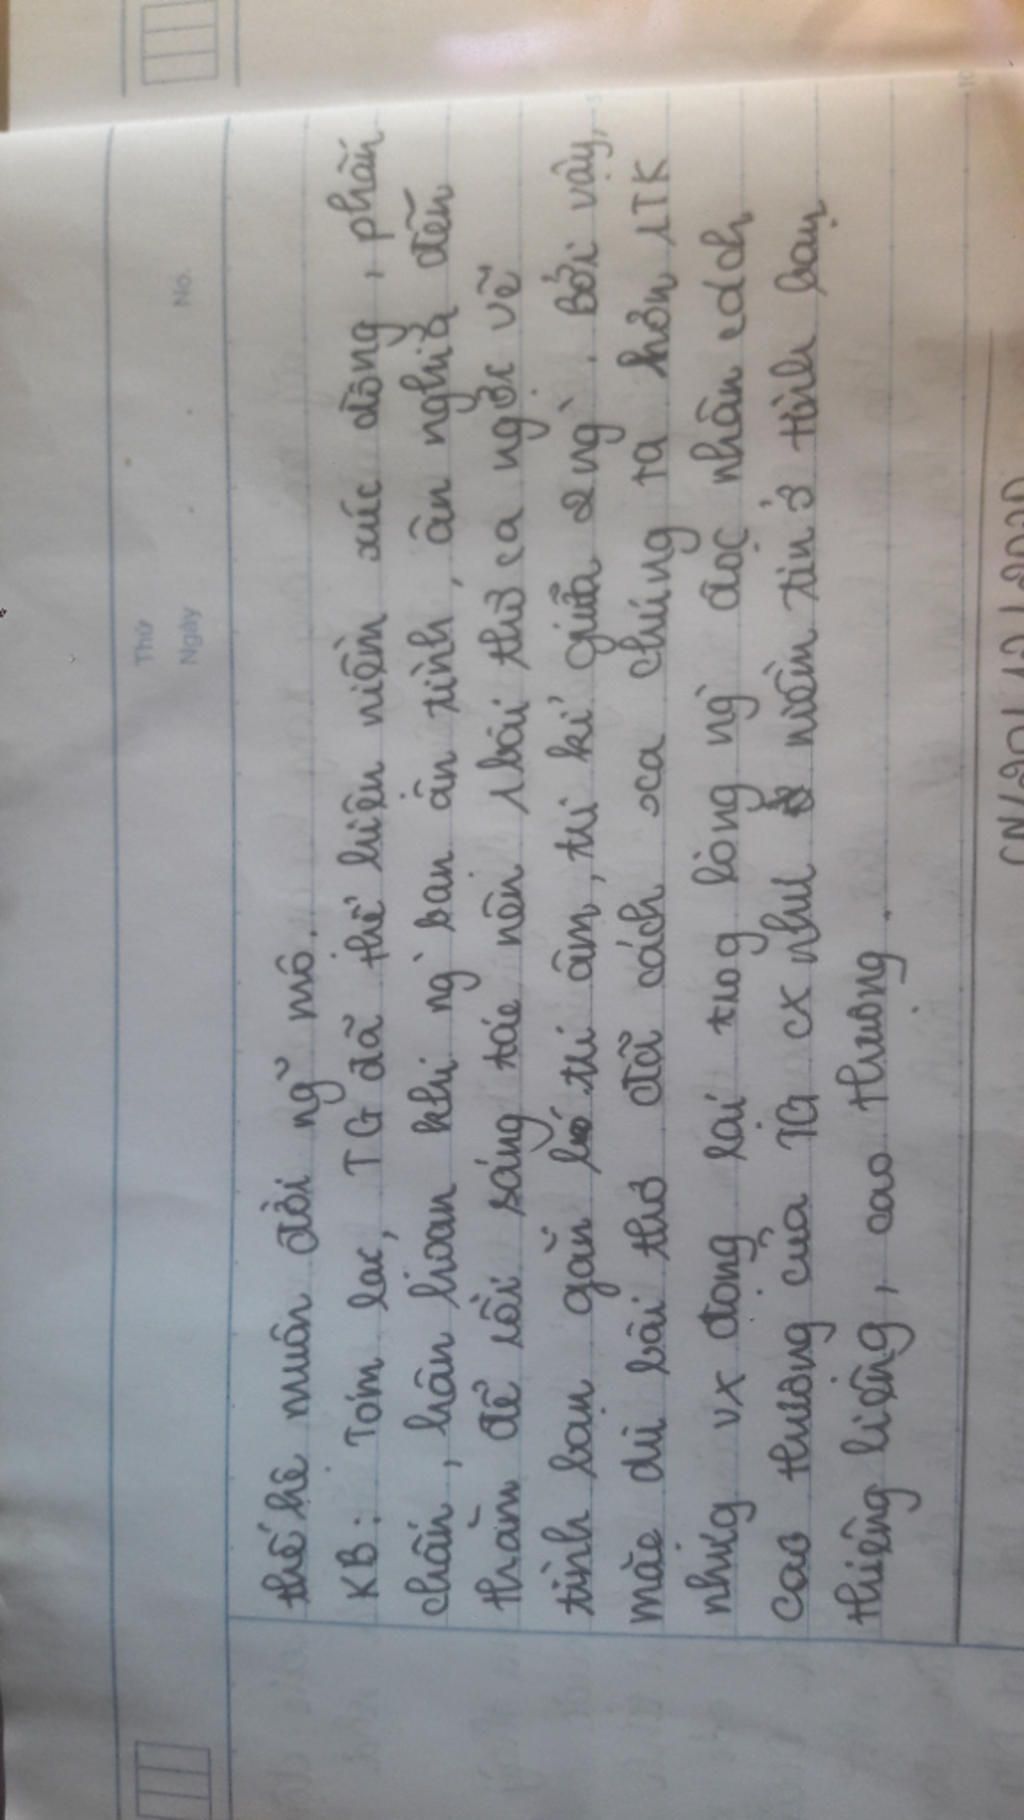 Thứ
Ngày
No.
thế hệ muôn đời ng~ mộ.
KB: Tóm lạc, TG đã thể hiện niềm xúc động, phấn
chấn, hân hoan khi ng` bạn ân tình, ân nghĩa đến
thăm để rồi sáng tác nên 1 bài thơ ca ngợi về
tình bạn gắn bó tri âm, tri kỉ giữa 2 ng`. Bởi vậy,
mặc dù bài thơ đã cách xa chúng ta hơn 1TK
nhưg vx đọng lại trog lòng ng` đọc nhân cách
cao thượng của TG cx như niềm tin ở tình bạn
thiêng liêng, cao thượng.
CN/20/12/2020
5
10